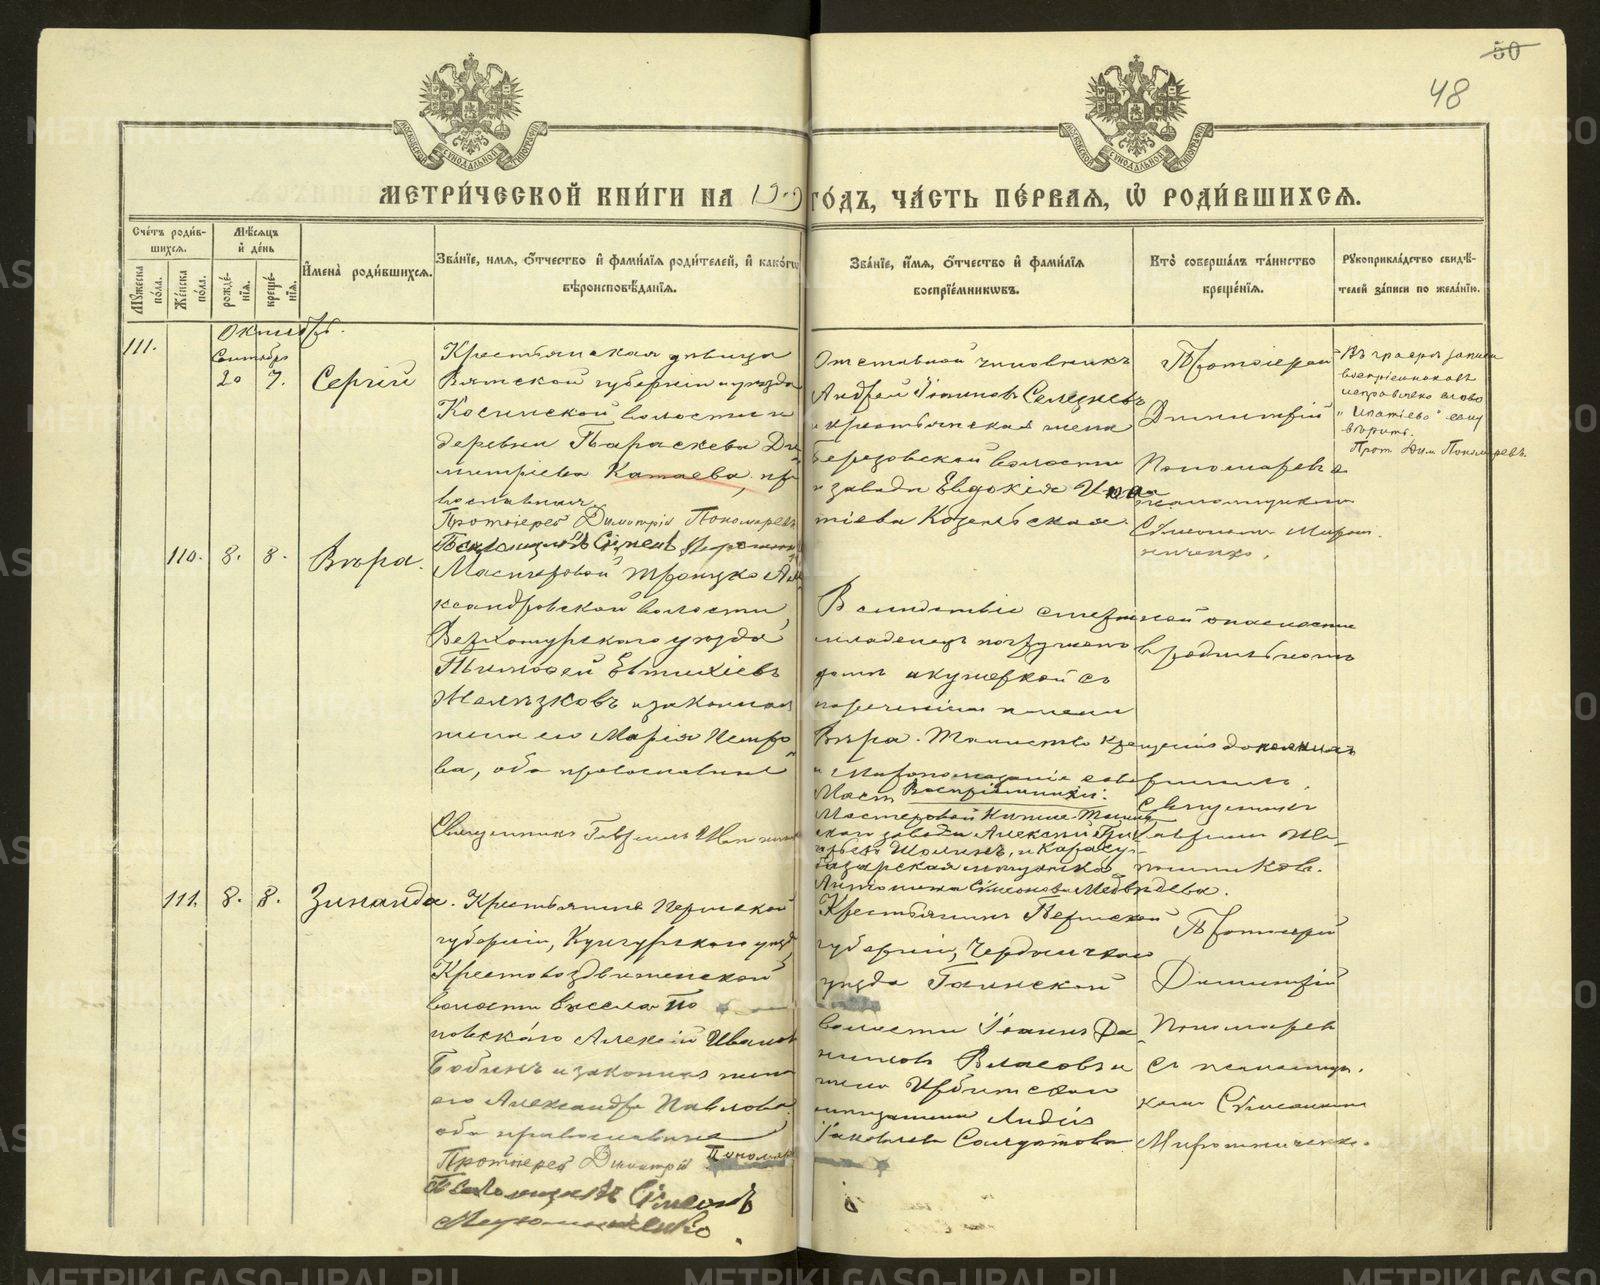 50
48
МЕТРИ́ЧЕСКОЙ КНИ́ГИ НА 1909 ГО́ДЪ, ЧА́СТЬ ПЕ́РВАѦ, Ѽ РОДИ́ВШИХСѦ.
Сче́тъ роди́в-
шихсѧ.
Мꙋ́жеска по́ла.
Же́нска по́ла.
Мѣ́сѧцъ
и҆ де́нь
рожде́-
нїѧ.
креще́-
нїѧ.
И҆мена̀ роди́вшихсѧ.
Зва́нїе, и҆мѧ, ѻ҆́тчество и҆ фами́лїѧ роди́телей, и҆ како́гѡ
вѣроисповѣ́данїѧ.
Зва́нїе, и҆́мѧ, ѻ҆́тчество и҆ фами́лїѧ
воспрїе́мникѡвъ.
Кто̀ соверша́лъ та́инство
креще́нїѧ.
Рꙋкоприкла́дство свидѣ́-
телей за́писи по жела́нїю.
Октябрь.
111.
Сентябр
20 7.
Сергій
Крестьянская дѣвица
Вятской губерніи и уезда
Косинской волости и
деревни Параскева Ди
митріева Катаева, пра
вославная
Протоіерей Димитрій Пономаревъ
Псаломщикъ Сѵмеонъ Мирошни
Отставной чиновникъ
Андрей Іоанновъ Селезневъ
и крестьянская жена
Березовской волости
и завода Евдокія Ипа
тіева Козельская.
Протоіерей
Димитрій
Пономаревъ с
псаломщикомъ
Сѵмеономъ Мирош
ниченко.
Въ графѣ записи
воспріемниковъ
исправлено слово
"Ипатіева" ему
вѣрить.
Прот. Дим. Пономаревъ
110. 8. 8.
Вѣра.
Мастеровой Троицко Але
ксандровской волости,
Верхотурскаго уезда
Тимофей Евтихіевъ
Желѣзковъ и законная
жена его Марія Петро
ва, оба православные
Священникъ Гавріилъ Ив
Вслѣдствіе смертной опасности
младенецъ погруженъ въ родильномъ
домѣ акушеркой съ
нареченіемъ имени
Вѣра. Таинство крещенія дополнилъ
и Миропомазаніе совершилъ
Воспріемники:
Мастеровой Нижне-Тагиль
скаго завода Алексій Гри
горьевъ Шоминъ, и Карасу
базарская мѣщанка
Антонина Сѵмеонова Медвѣдева.
Священникъ
Гавріилъ
111. 8. 8.
Зинаида.
Крестьянинъ Пермской
губерніи, Кунгурскаго уезд
Крестовоздвиженской
волости села По
повскаго Алексій Ивановъ
Бобинъ и законная жена
его Александра Павлова
оба православные
Протоіерей Димитрій Пономаре
Псаломщикъ Сѵмеонъ
Мирошниченко.
Крестьянинъ Пермской
губерніи, Чердынскаго
уезда Гаинской
волости Іоаннъ Да
ниловъ Власовъ и
жена Ирбитскаго
мещанина Лидія
Іаковлева Солдатова
Протоіерей
Димитрій
Пономарев
съ псаломщи
комъ Сѵмеономъ
Мирошниченко.